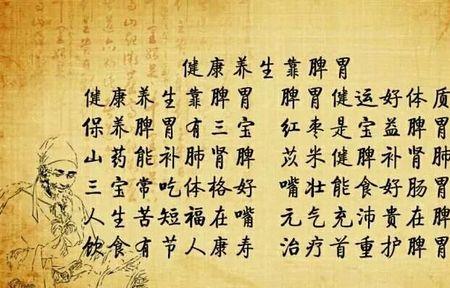 健康养生靠脾胃
健康养生靠脾胃 脾胃健运好体质
保养脾胃有三宝 红枣是宝益脾胃
山药能补肺肾脾 苡米健脾补肾肺
三宝常吃体格好 嘴壮能食好肠胃
人生苦短福在嘴 元气充沛贵在脾
饮食有节人康寿 治疗首重护脾胃